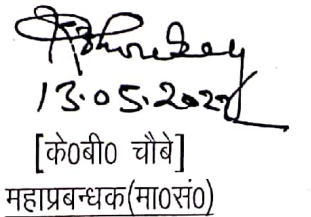 13.05.2022
[के0बी0 चौबे]
महाप्रबन्धक(मा0सं0)